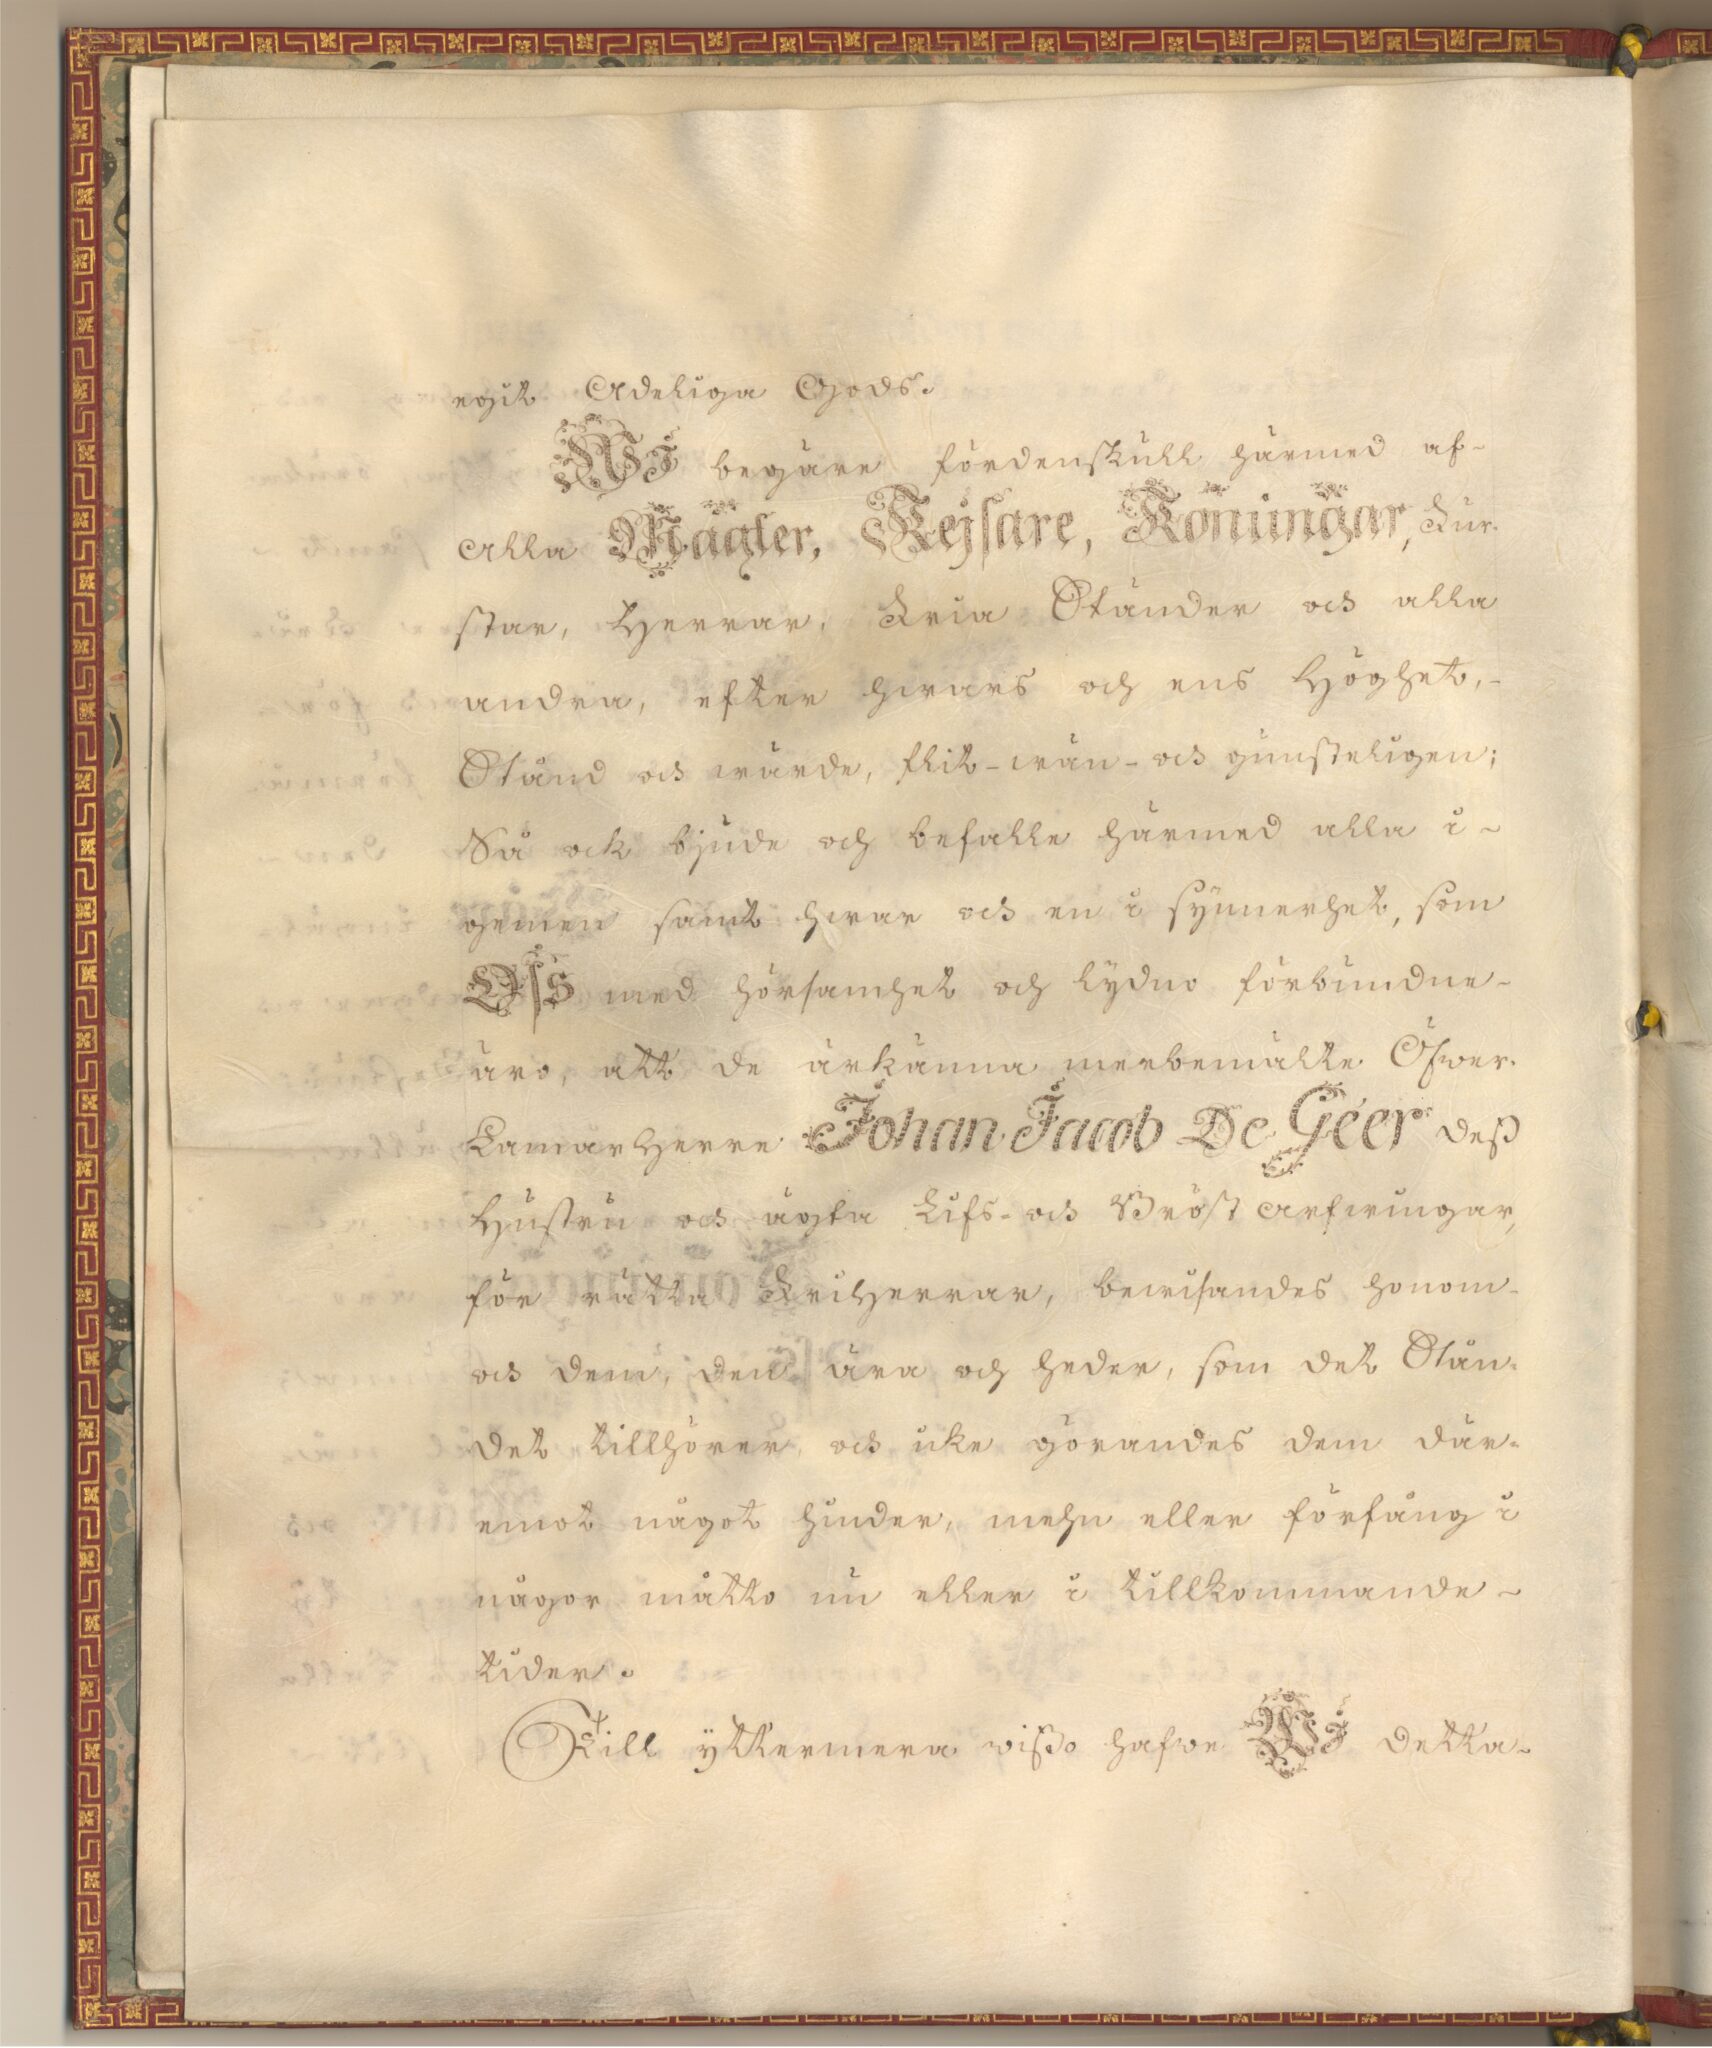 egit Adeliga Gods.
WI begäre fördenskull härmed af-
alla Mägter, Kejsare, Konungar, Fur-
star, Herrar, Fria Ständer och alla
andra, efter hwars och ens Höghet,-
Stånd och wärde, flit-wän-och gunsteligen;
Så ock bjude och befalle härmed alla i-
gemen samt hwar och en i synnerhet, som
Oss med hörsamhet och lydno förbundne-
äro, att de ärkänna merbemälte Öfwer-
KamarHerre Johan Jacob De Géer deß
Hustru och ägta Lifs-och Bröst Arfwingar,
för rätta FriHerrar, bewisandes honom-
och dem, den ära och heder, som det Stån-
det tillhörer, och icke görandes dem där-
emot något hinder, mehn eller förfång i
någor måtto nu eller i tillkommande-
tider.
Till yttermera wißo hafwe WI detta-